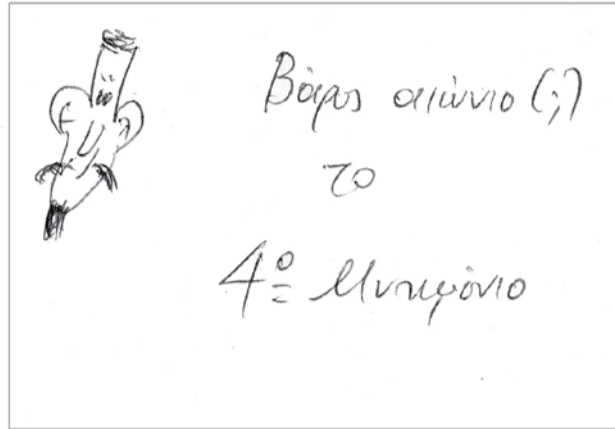 Βάρος αιώνιο (;)
το
4º Μνημόνιο